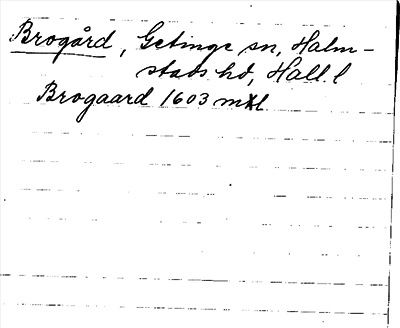 Brogård, Getinge sn, Halm-
stads hd, Hall. l
Brogaard 1603 mtl